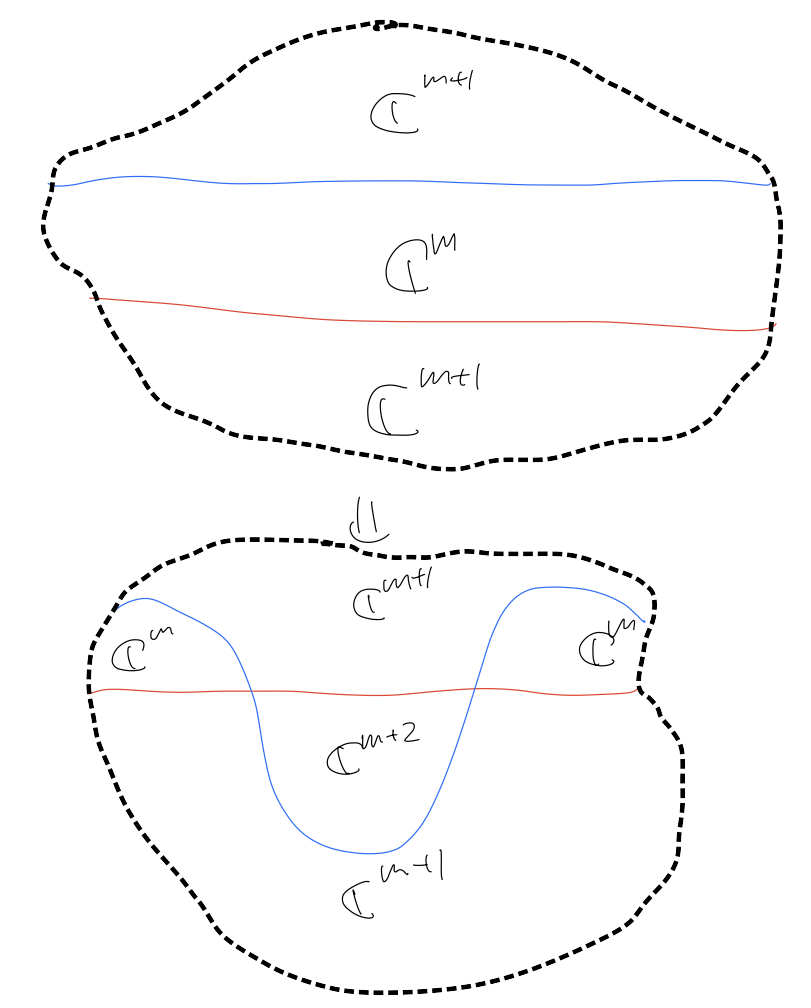 ℂ^{m+1}
ℂ^m
ℂ^{m+1}
ℂ^{m+1}
ℂ^m ℂ^m
ℂ^{m+2}
ℂ^{m+1}